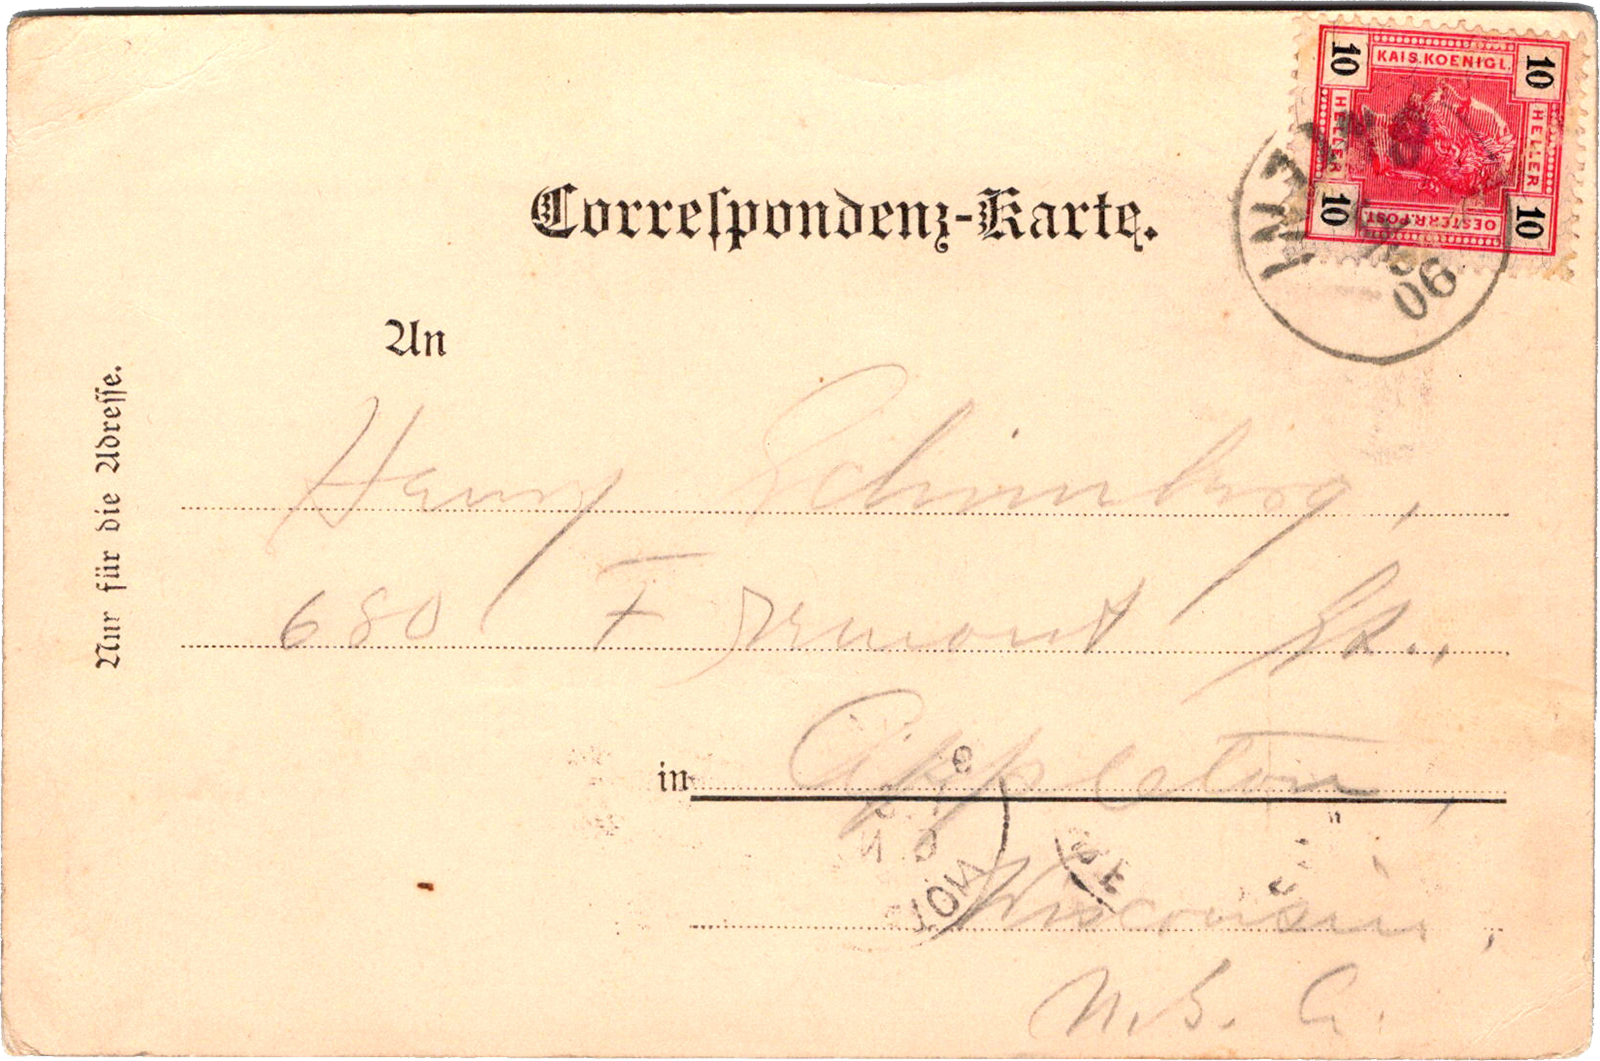 Correspondenz-Karte.
KAIS. KOENIGL.
10
10
HELLER
HELLER
10
10
OESTERR. POST.
06
An
Nur für die Adresse.
Henry Schimberg,
680 Fremont St.,
in Appleton,
Wisconsin,
U. S. A.